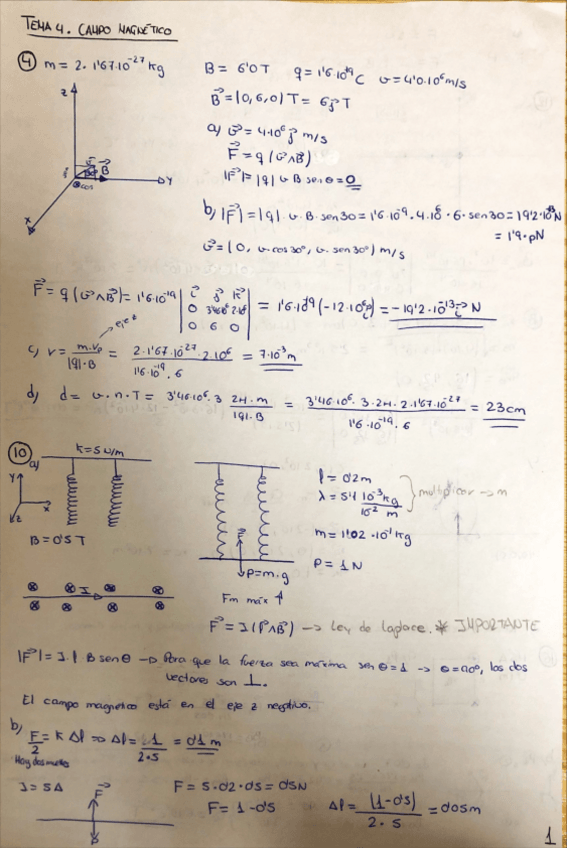 TEMA 4. CAMPO MAGNÉTICO
④ m = 2 · 1'67·10⁻²⁷ kg
B = 6'0 T q = 1'6·10⁻¹⁹ C v = 4'0·10⁶ m/s
B⃗ = (0, 6, 0) T = 6j⃗ T
a) v⃗ = 4·10⁶ j⃗ m/s
F⃗ = q (v⃗ ∧ B⃗)
|F⃗| = |q| v B sen θ = 0
z
B⃗
y
x
b) |F⃗| = |q| · v · B · sen 30 = 1'6·10⁻¹⁹ · 4·10⁶ · 6 · sen 30 = 19'2·10⁻¹³ N
= 1'9 · pN
v⃗ = (0, v·cos 30°, v·sen 30°) m/s
F⃗ = q (v⃗ ∧ B⃗) = 1'6·10⁻¹⁹ | i⃗ j⃗ k⃗ | = 1'6·10⁻¹⁹ (-12·10⁶ i⃗) = -19'2·10⁻¹³ i⃗ N
0 3'46·10⁶ 2·10⁶
0 6 0
eje z
c) r = m·v₂ / |q|·B = 2·1'67·10⁻²⁷·2·10⁶ / 1'6·10⁻¹⁹·6 = 7·10⁻³ m
d) d = v·n·T = 3'46·10⁶·3 2π·m / |q|·B = 3'46·10⁶·3·2π·2·1'67·10⁻²⁷ / 1'6·10⁻¹⁹·6 = 23 cm
⑩ a) K = 5 N/m
y
x
z
B = 0'5 T
I
F⃗
P = m·g
Fm máx ↑
l = 0'2 m
λ = 5'1 10⁻³ kg / 10⁻² m
multiplicar → m
m = 1'02·10⁻¹ kg
P = 1 N
F⃗ = I (l⃗ ∧ B⃗) → Ley de Laplace. * IMPORTANTE
|F⃗| = I·l B sen θ → Para que la fuerza sea máxima sen θ = 1 → θ = 90°, los dos
vectores son ⊥.
El campo magnético está en el eje z negativo.
b) F/2 = K Δl ⇒ Δl = 1 / 2·5 = 0'1 m
Hay dos muelles
I = 5A
F⃗
F = 5·0'2·0'5 = 0'5N
F = 1 - 0'5
Δl = (1 - 0'5) / 2·5 = 0'05m
1